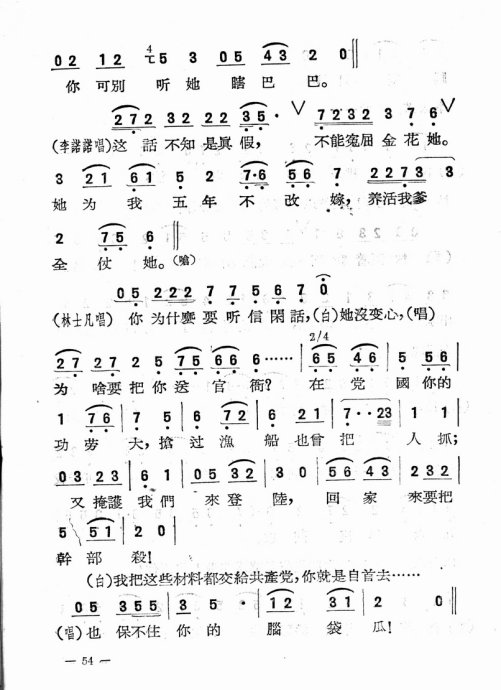 0 2 1 2 4 七 5 3 0 5 4 3 2 0
你 可別 听 她 瞎 巴 巴。
2 7 2 3 2 2 2 3 5 · V 7 2 3 2 3 7 6 V
(李諾諾唱)这 話 不知 是眞 假， 不能寃屈 金 花 她。
3 2 1 6 1 5 2 7·6 5 6 7 2 2 7 3 3
她 为 我 五 年 不 改 嫁，养活我爹
2 7 5 6
全 仗 她。(嗆)
0 5 2 2 2 7 7 5 6 7 0
(林士凡唱) 你 为什麼 要 听 信 閑 話，(白)她沒变心，(唱)
2/4
2 7 2 7 2 5 7 5 6 6 6 …… | 6 5 4 6 | 5 5 6 |
为 啥要 把 你 送 官 衙？ 在 党 國 你的
1 7 6 | 7 5 | 6 7 2 | 6 2 1 | 7 · · 2 3 | 1 1 |
功 劳 大，搶 过 漁 船 也曾 把 人 抓；
0 3 2 3 | 6 1 | 0 5 3 2 | 3 0 | 5 6 4 3 | 2 3 2 |
又 掩護 我們 來 登 陸， 回 家 來要把
5 5 1 | 2 0 |
幹 部 殺！
(白)我把这些材料都交給共產党，你就是自首去……
0 5 3 5 5 | 3 5 · | 1 2 3 1 | 2 0
(唱)也 保不住 你 的 腦 袋 瓜！
— 54 —